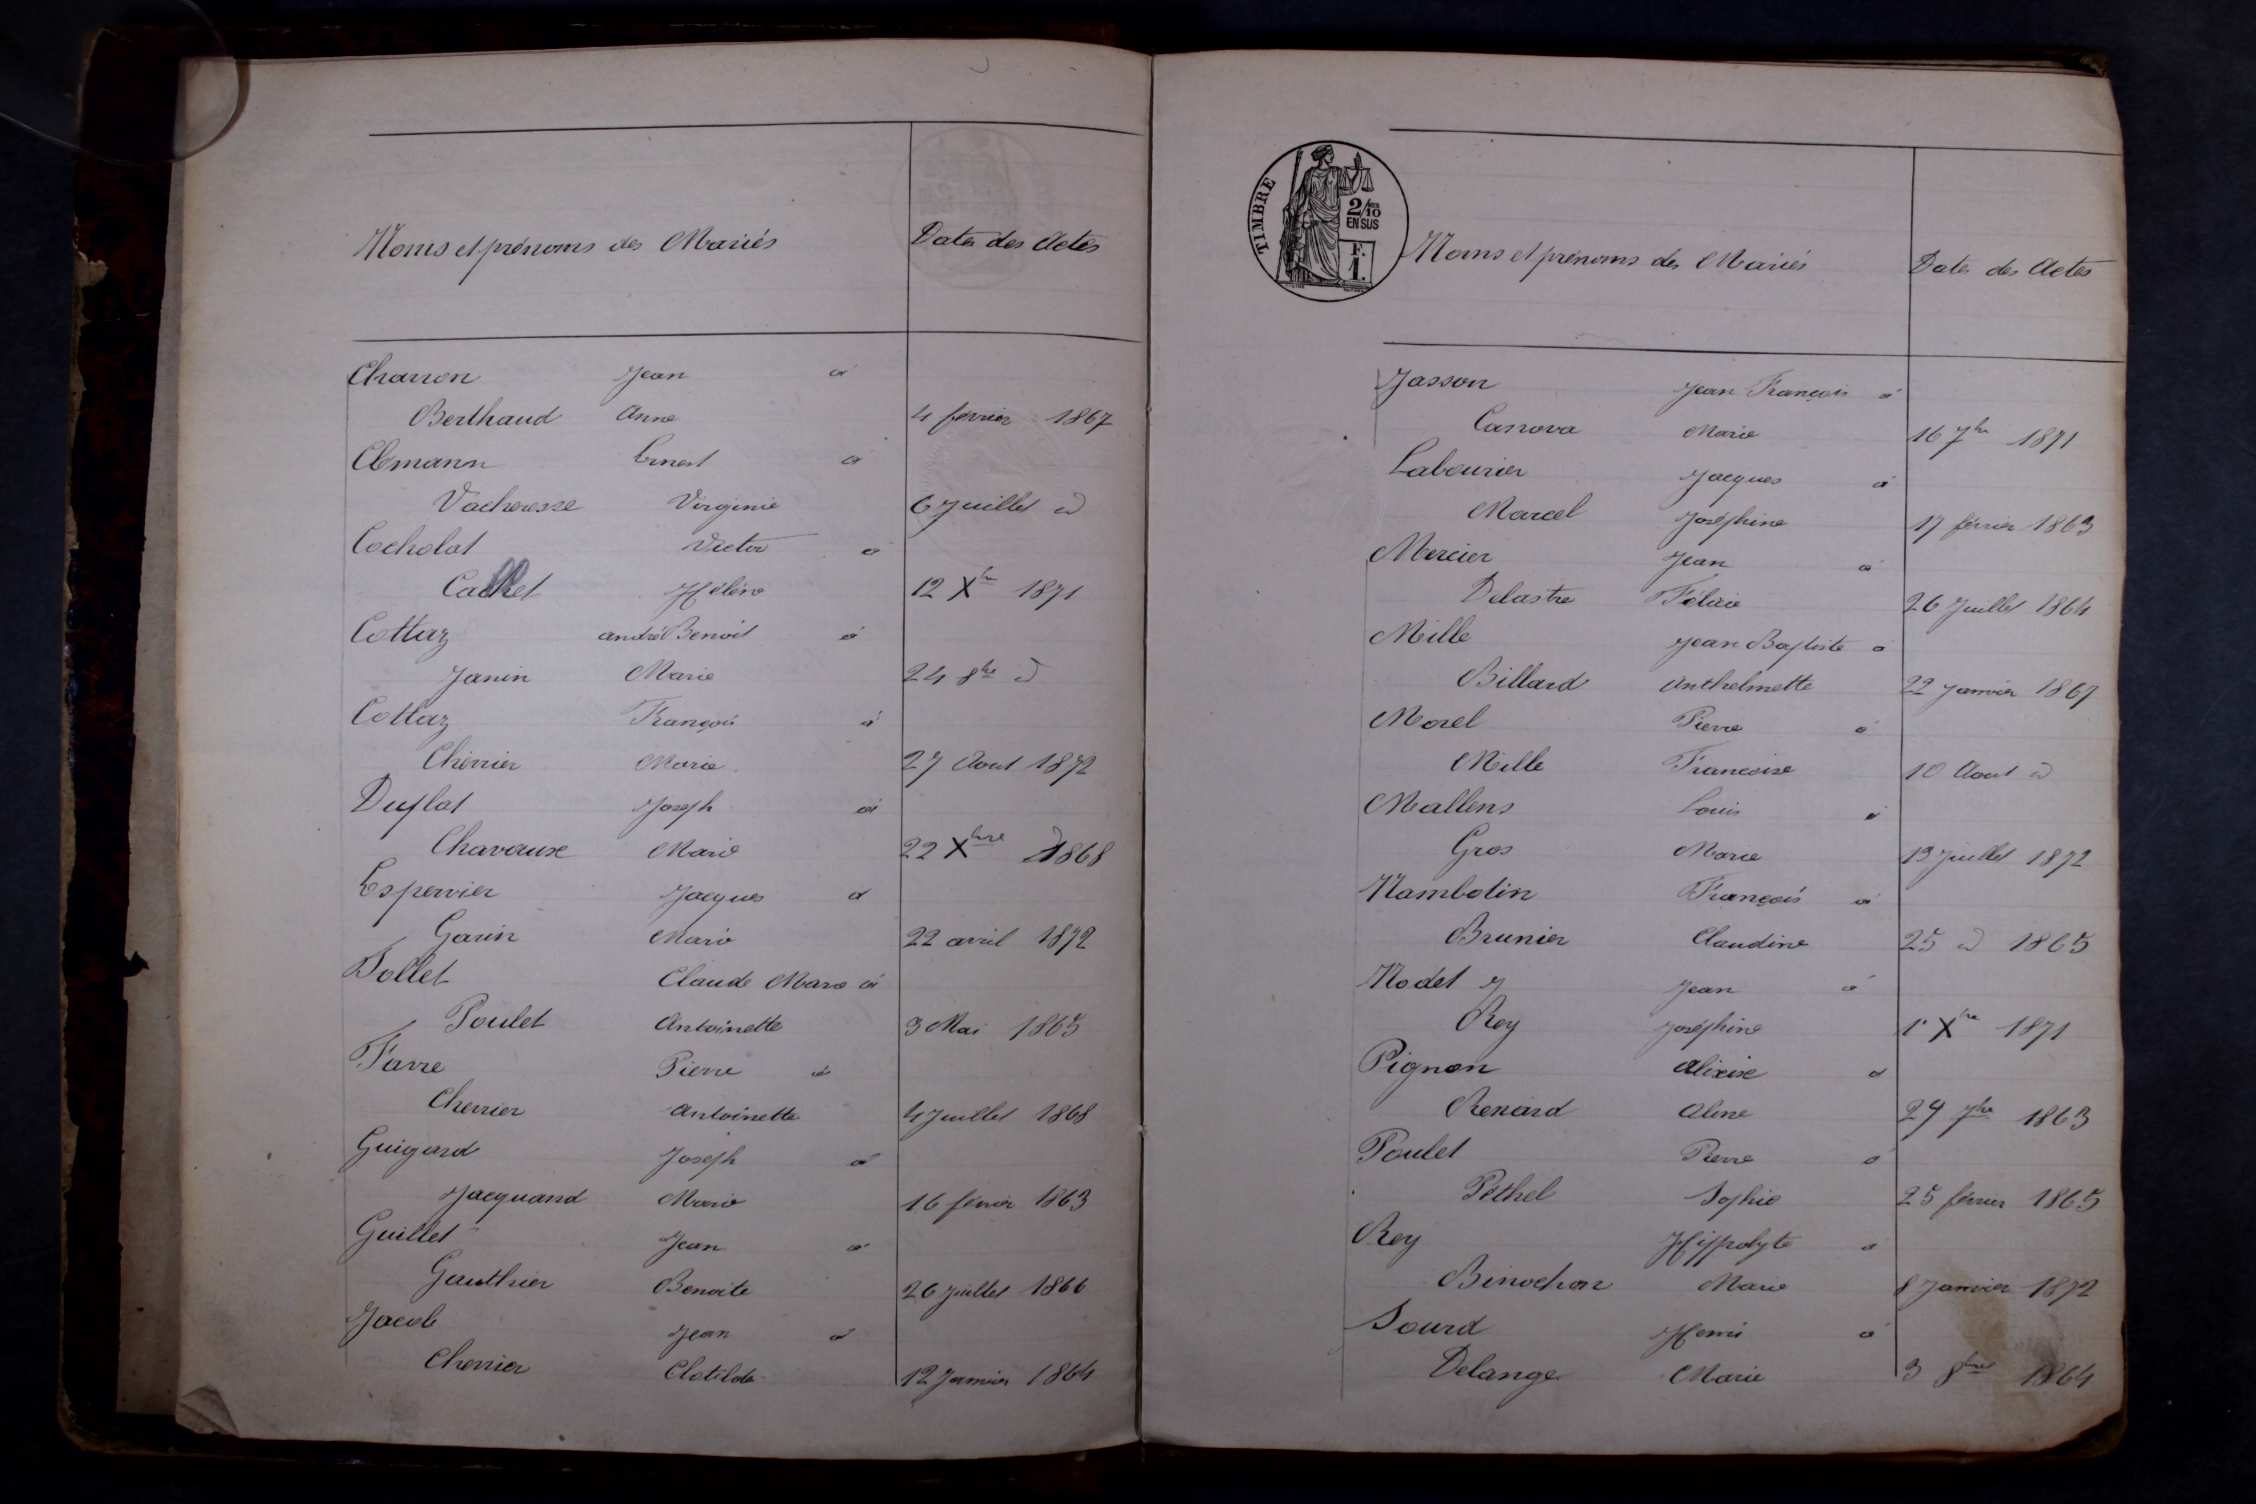 Noms et prénoms des Mariés Dates des Actes
Charron Jean à
Berthaud Anne 4 février 1867
Clemann Ernest à
Vacheresse Virginie 6 Juillet d
Cocholat Victor à
Hélène 12 Xbre 1871
Cottaz André Benoit à
Janin Marie 24 8bre d
Cottaz François à
Chérrier Marie 27 Aout 1872
Duflot Joseph à
Marie 22 Xbre 1868
Espervier Jacques à
Garin Marie 22 avril 1872
Follet Claude Marie à
Poulet Antoinette 3 Mai 1865
Favre Pierre à
Cherrier Antoinette 4 Juillet 1868
Guigard Joseph à
Jacquand Marie 16 février 1863
Guillet Jean à
Gauthier Benoite 26 Juillet 1866
Jacob Jean à
Cherrier Clotilde 12 Janvier 1864
TIMBRE
2/10
EN SUS
F.
1.
Noms et prénoms des Mariés Dates des Actes
Jasson Jean François à
Casnova Marie 16 7bre 1871
Labourier Jacques à
Marcel Joséphine 17 février 1863
Mercier Jean à
Delastre Félicie 26 Juillet 1864
Mille Jean Baptiste à
Billard Anthelmette 22 Janvier 1867
Morel Pierre à
Mille Francoise 10 Aout d
Mallens Louis à
Gros Marie 13 Juillet 1872
Nambotin François à
Brunier Claudine 25 d 1865
Nodet J Jean à
Rey Joséphine 1er Xbre 1871
Pignon à
Renard Aline 24 7bre 1863
Poulet Pierre à
Péthel Sophie 25 février 1865
Rey Hippolyte à
Binochon Marie 8 Janvier 1872
Sourd Henri à
Delange Marie 3 8bre 1864